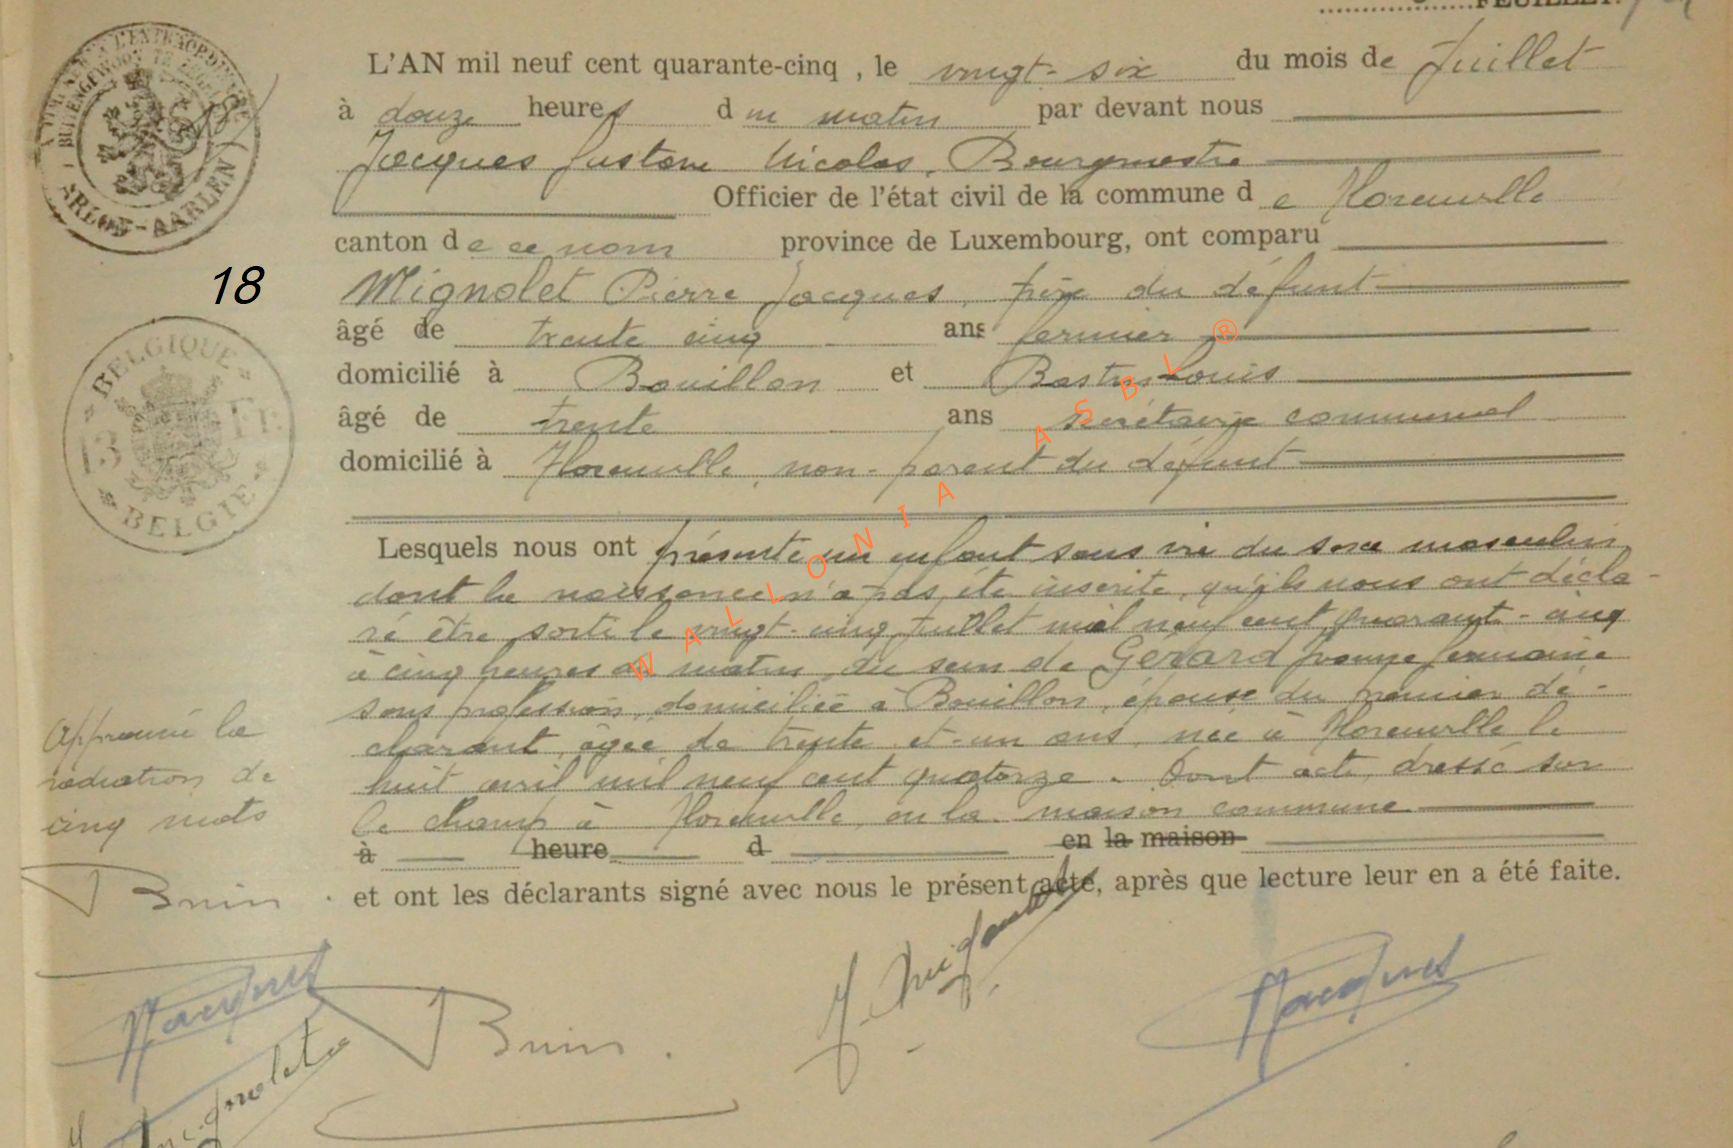 FEUILLET.
L'AN mil neuf cent quarante-cinq , le vingt-six du mois de Juillet
à douze heures du matin par devant nous
Jacques Gustave Nicolas, Bourgmestre
Officier de l'état civil de la commune de Florenville
canton de ce nom province de Luxembourg, ont comparu
18
Mignolet Pierre Jacques, père du défunt
âgé de trente cinq ans fermier
domicilié à Bouillon et Louis
âgé de trente ans secrétaire communal
domicilié à Florenville, non-parent du défunt
Lesquels nous ont présenté un enfant sans vie du sexe masculin
dont la naissance n'a pas été inscrite, qu'ils nous ont décla-
ré être sorti le vingt-cinq Juillet mil neuf cent quarante-cinq
à cinq heures du matin du sein de Gérard Yvonne Germaine
sans profession, domiciliée à Bouillon, épouse du premier dé-
clarant, âgée de trente et-un ans, née à Florenville le
huit avril mil neuf cent quatorze. Dont acte, dressé sur
le champ à Florenville, en la maison commune
à heure d en la maison
et ont les déclarants signé avec nous le présent acte, après que lecture leur en a été faite.
Approuvé la
radiation de
cinq mots
Jacques
Mignolet
Jacques
BELGIQUE
3 FR
BELGIE
ARLON-AARLEN
WALLONIA ASBL ®